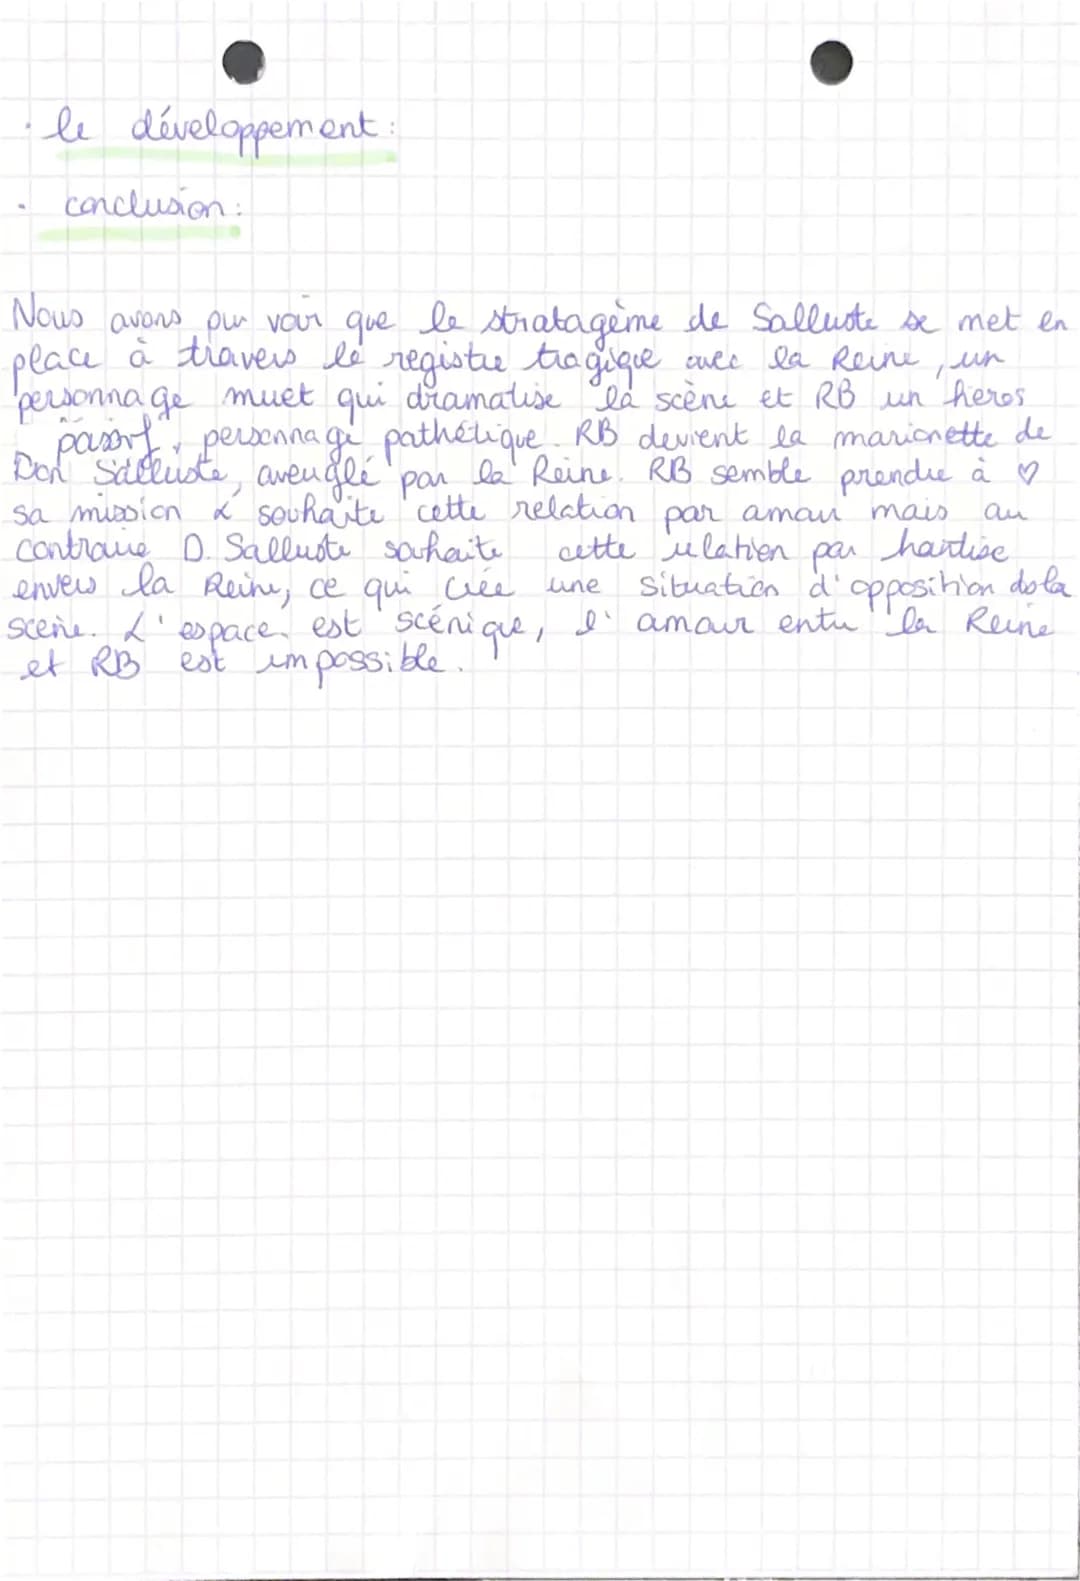 · le développement :
· conclusion :
Nous avons pu voir que le stratagème de Salluste se met en
place à travers le registre tragique avec la Reine, un
personnage muet qui dramatise la scène et RB un héros
passif, personnage pathétique. RB devient la marionette de
Don Salluste, aveuglé par la Reine. RB semble prendre à ♡
sa mission & souhaite cette relation par amour mais au
contraire D. Salluste souhaite cette relation par hantise
envers la Reine, ce qui crée une situation d'opposition ds la
scène. L'espace est scénique, l'amour entre la Reine
et RB est impossible.